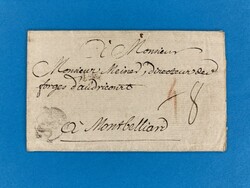 A Monsieur
Monsieur Meiner, directeur des
forges d'audricourt
A Montbelliard
18